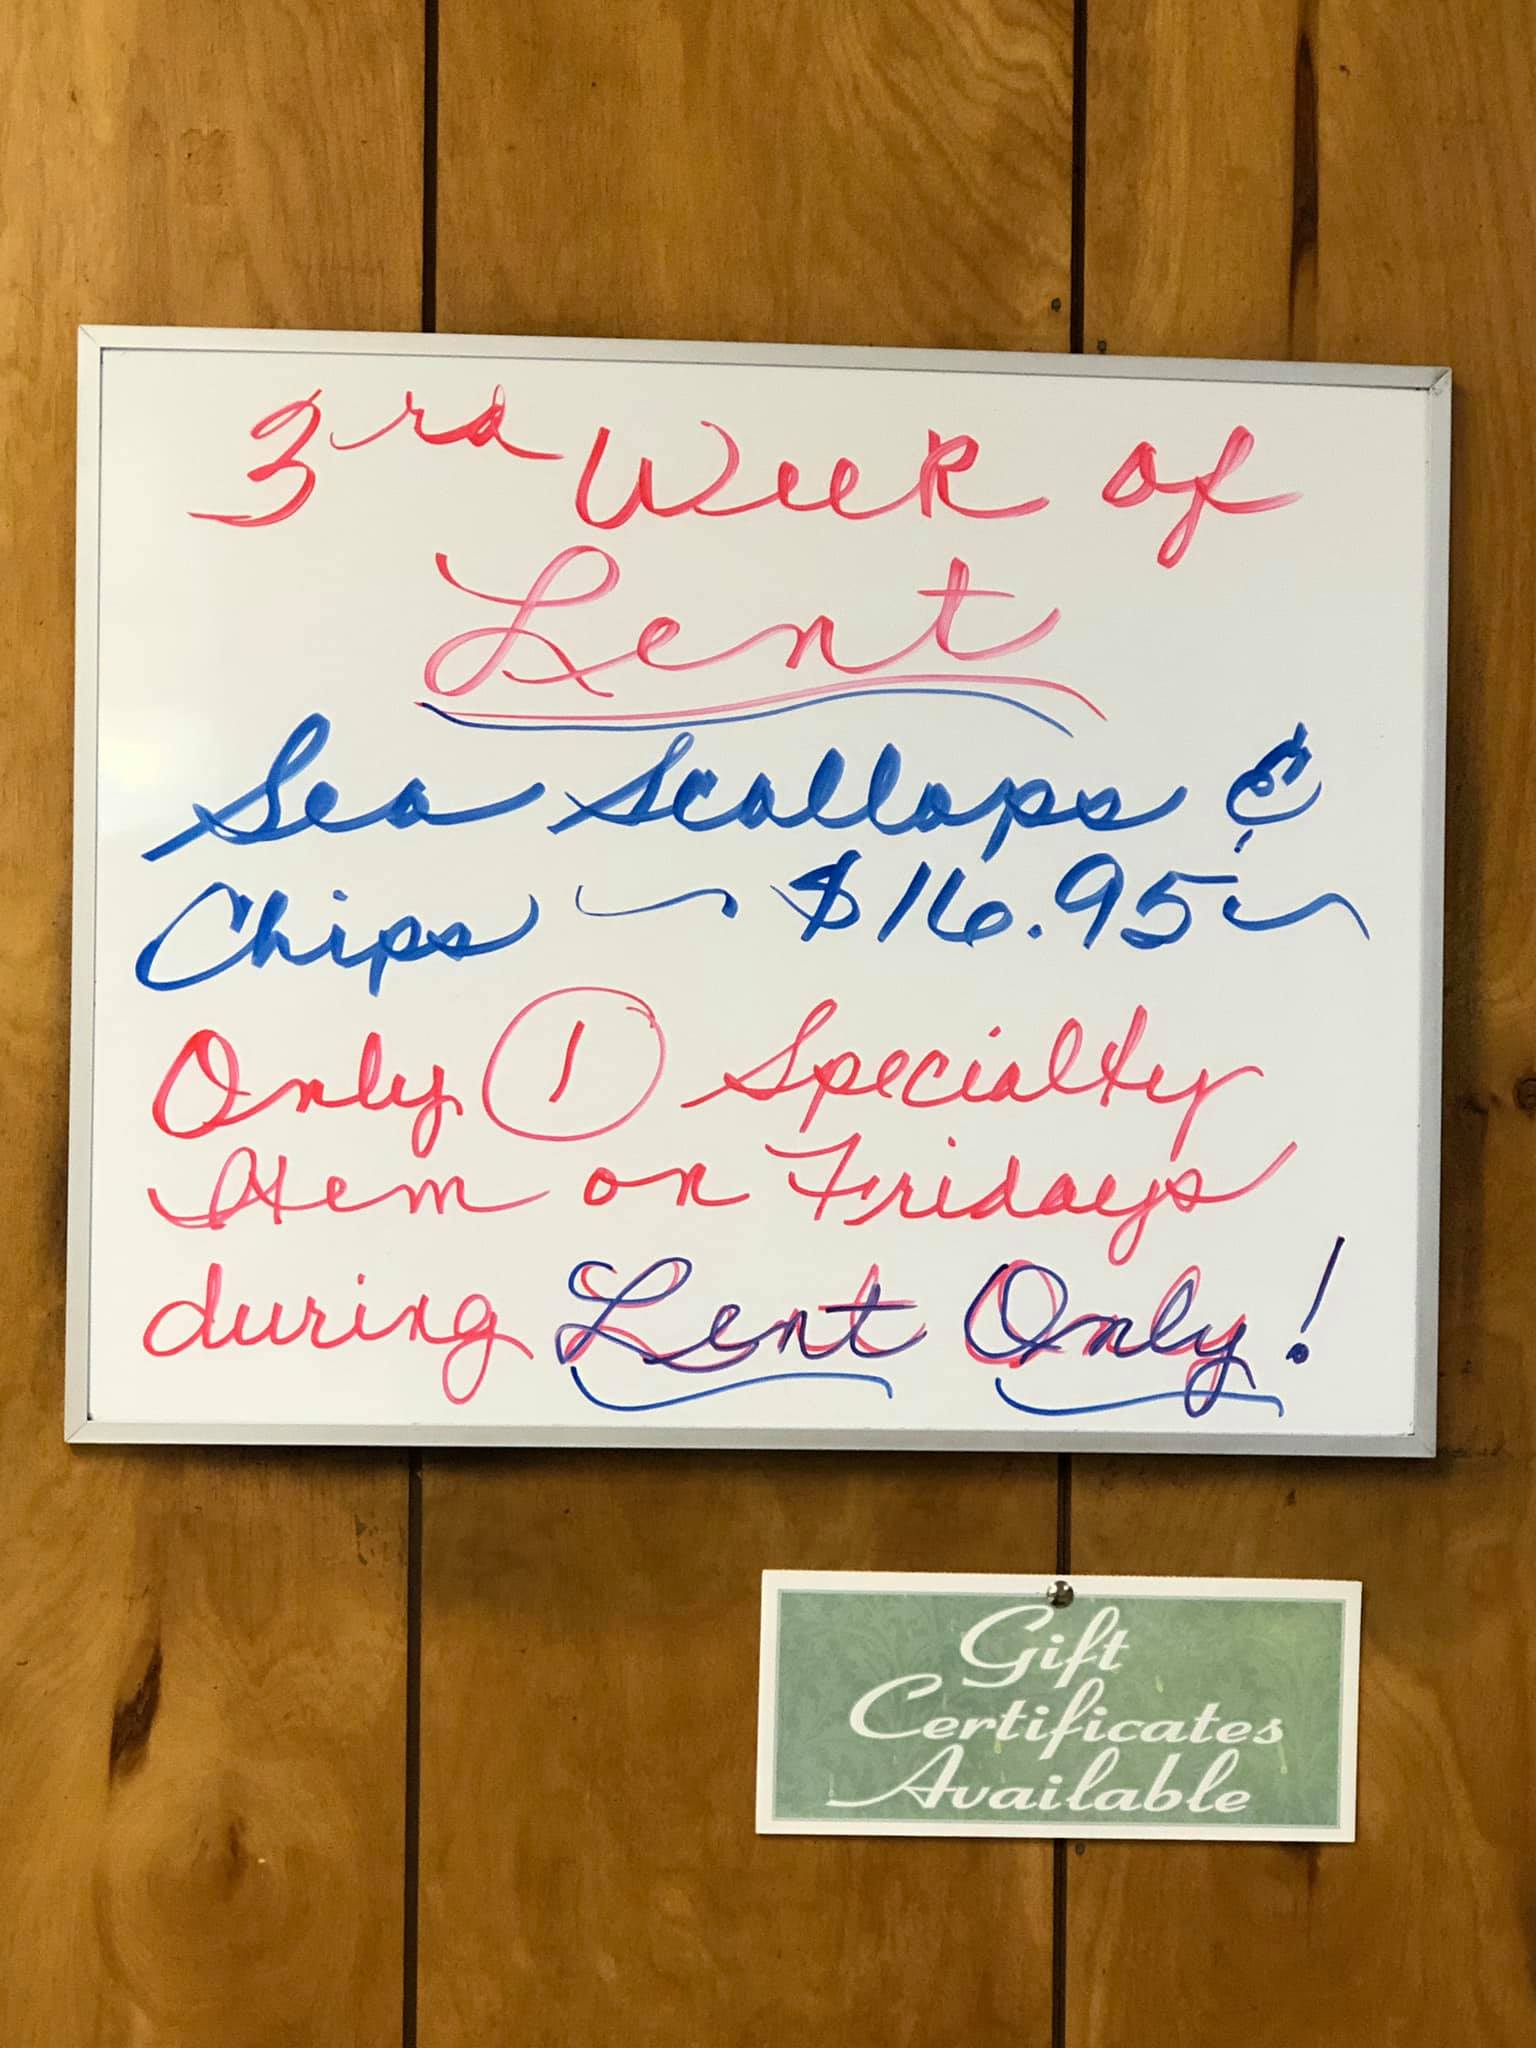 3rd Week of
Lent
Sea Scallops &
Chips ~ $16.95 ~
Only 1 Specialty
Item on Fridays
during Lent Only!
Gift
Certificates
Available